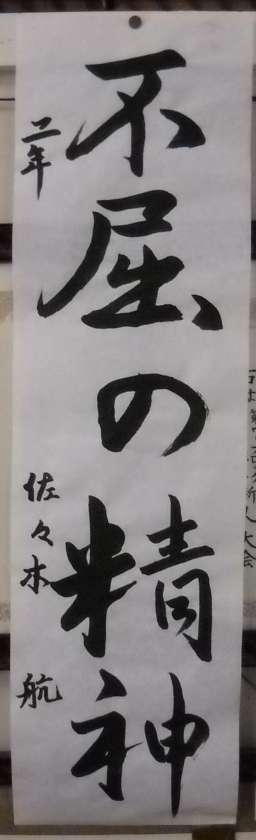 不屈の精神
二年 佐々木 航